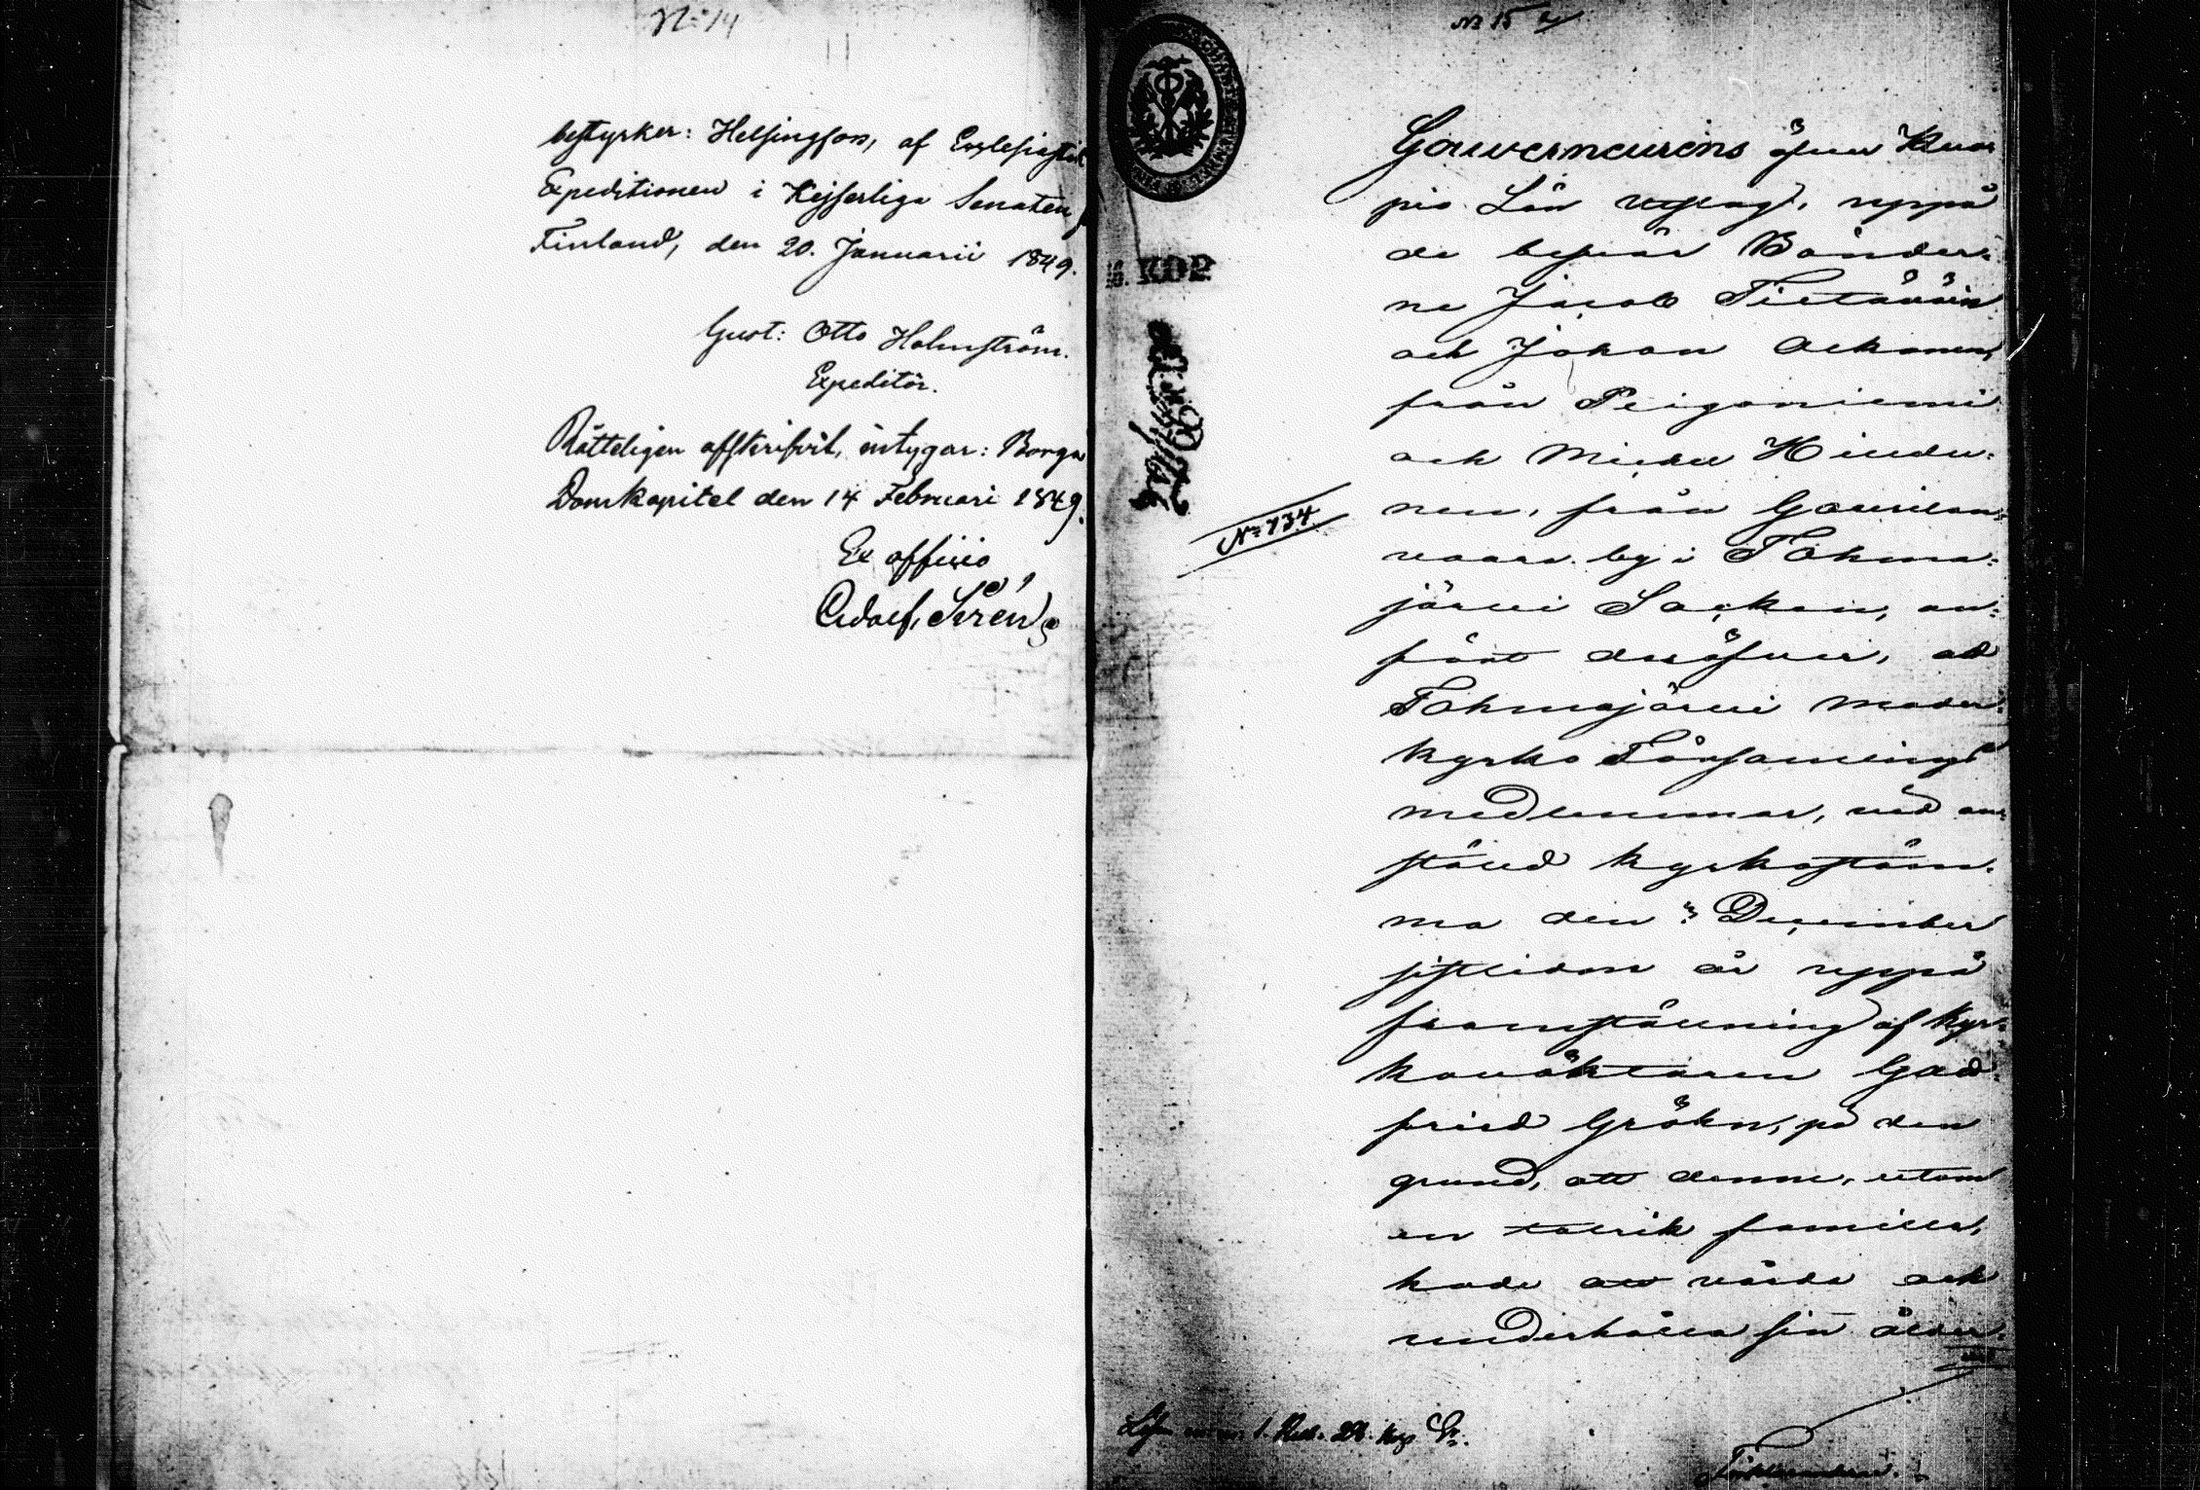 N:o 14
bestyrker: Helsingfors, af Ecklesiastik
Expeditionen i Kejserliga Senaten f
Finland, den 20. Januarii 1849.
Gust: Otto Holmström.
Expeditör.
Rätteligen afskrifvit, intygar: Borgå
Domkapitel den 14 Februari 1849.
Ex officio
Adolf Sirén
N:o 15
KOP.
N:o 734
Gouverneurens öfver Kuo-
pio Län utslag, uppå
de besvär Bönder-
ne Jacob Tietäväin
och Johan
från Peijoniemi
och Hirvo-
nen, från
vaara by i Tohma-
järvi Socken, an-
fört deröfver, att
Tohmajärvi moder-
kyrko Församlings
medlemmar, vid an-
ställd kyrkostäm-
ma den 3 December
sistlidne år uppå
framställning af kyr-
koväktaren God-
fried Gröhn, på den
grund, att denne, utom
en talrik famille,
hade att vårda och
underhålla sin ålder-
Lösen 1. Rub. 28. kop. Sr.